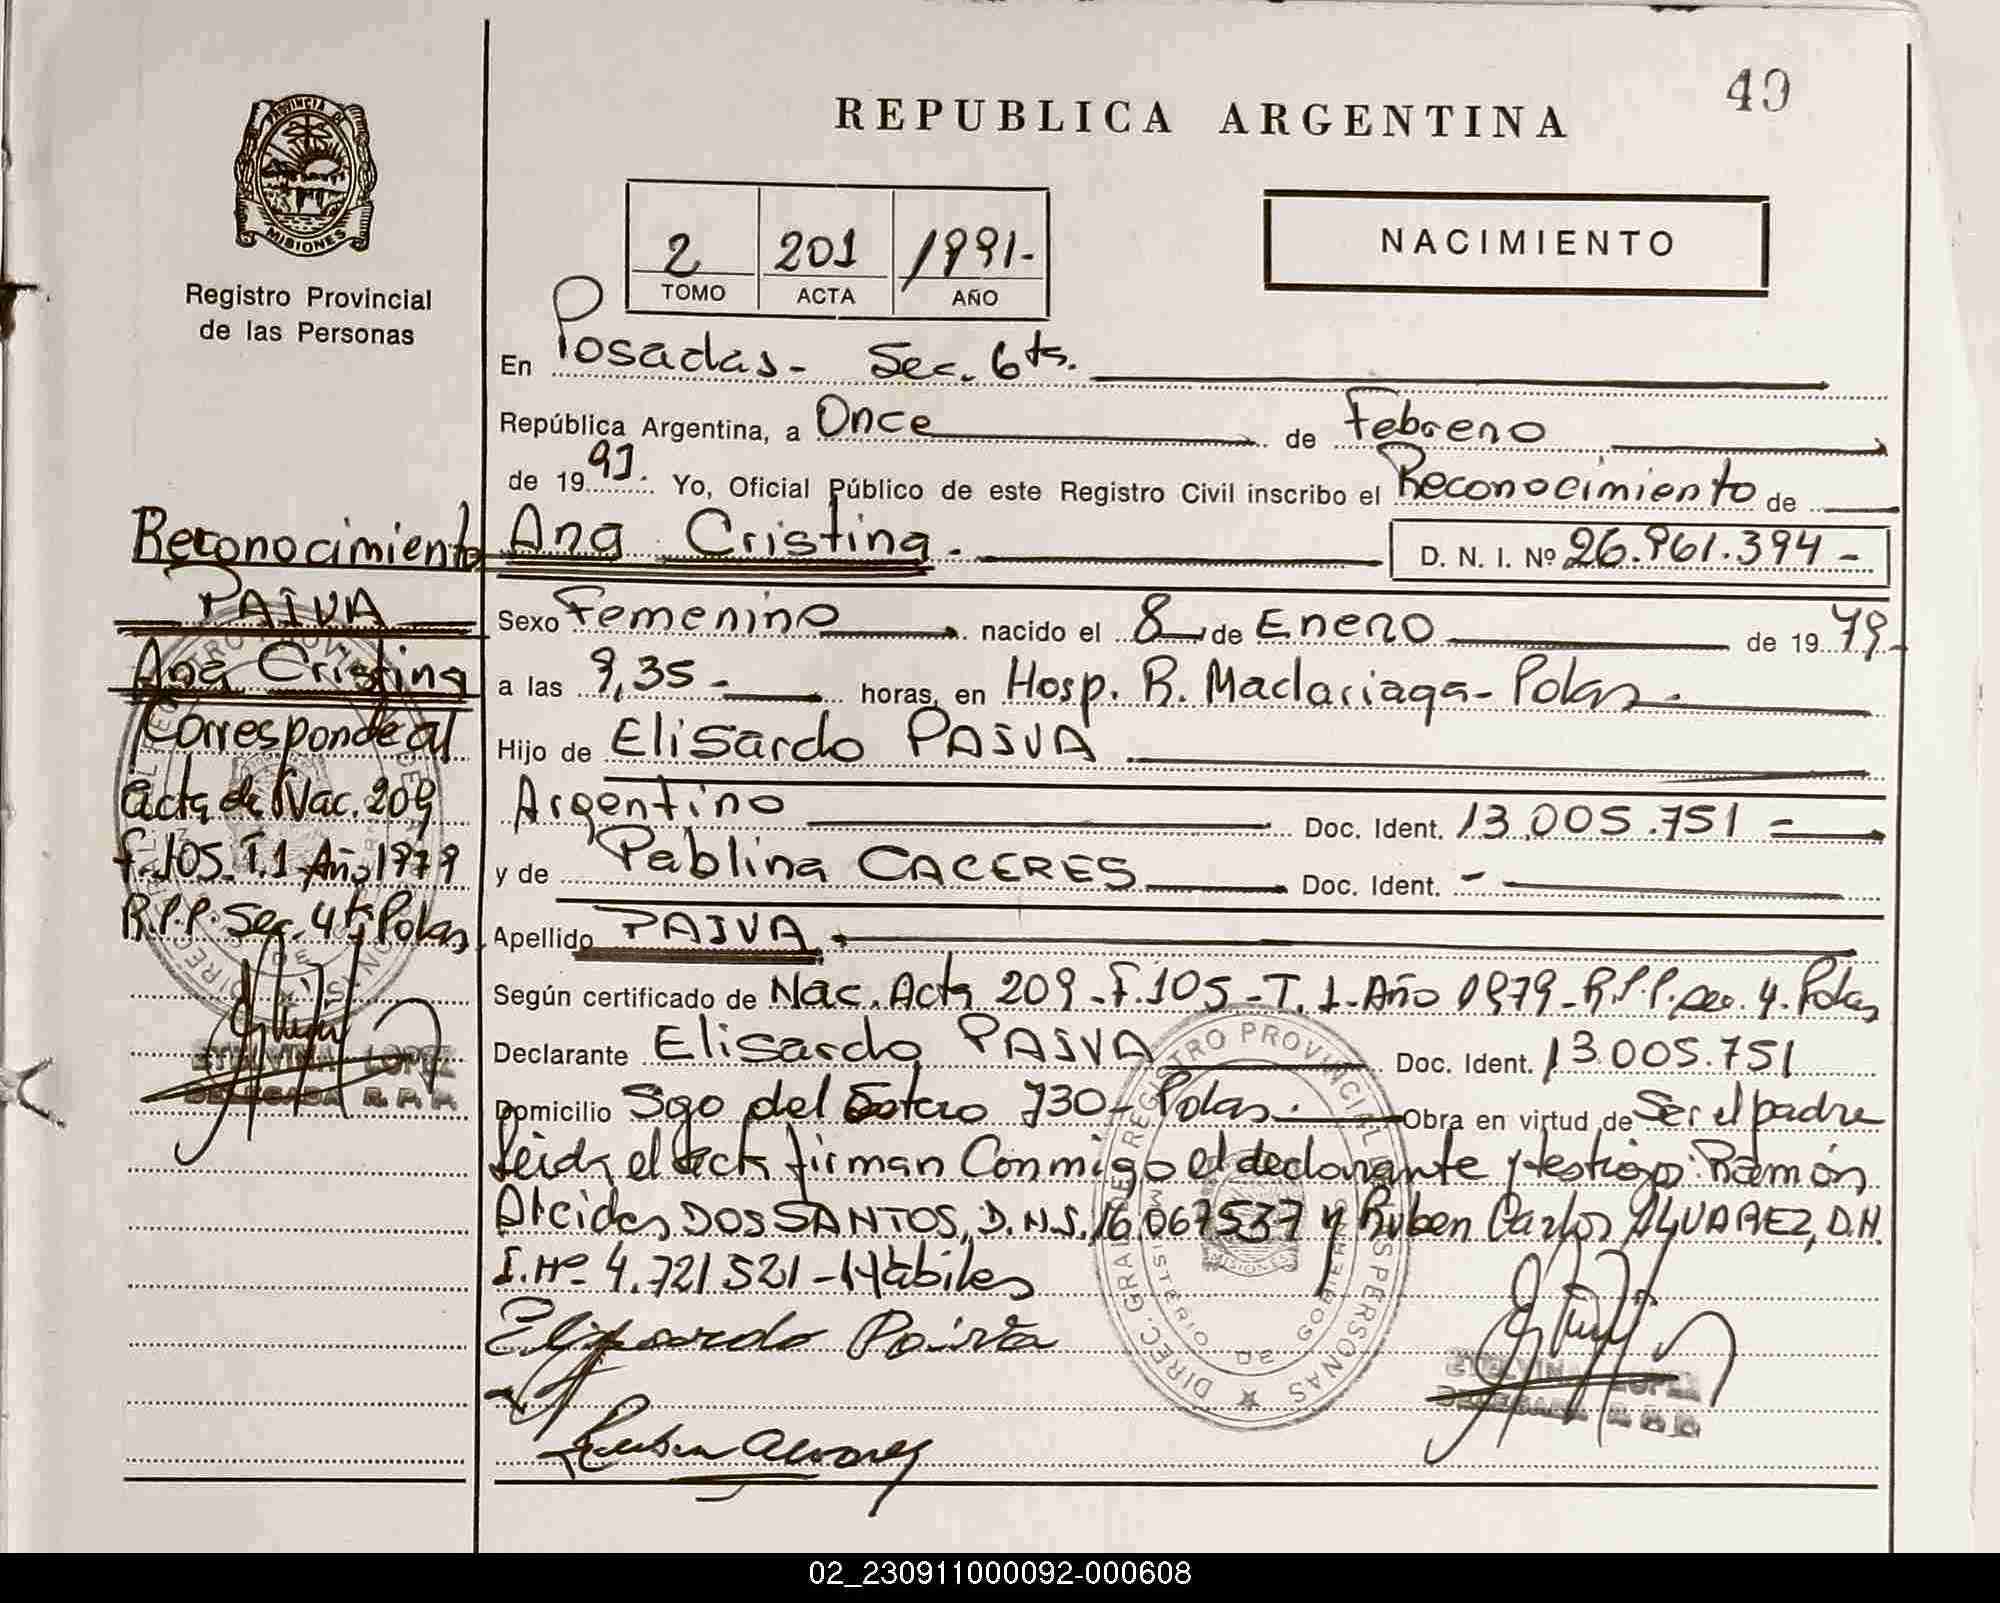 49
REPUBLICA ARGENTINA
PROVINCIA DE
MISIONES
Registro Provincial
de las Personas
2 201 1991-
TOMO ACTA AÑO
NACIMIENTO
En Posadas - Sec. 6ta.
República Argentina, a Once de Febrero
de 1991. Yo, Oficial Público de este Registro Civil inscribo el Reconocimiento de
Ana Cristina - D. N. I. Nº 26.961.394 -
Sexo Femenino nacido el 8 de Enero de 1979-
a las 9,35 - horas, en Hosp. R. Madariaga - Pdas.
Hijo de Elisardo PAIVA
Argentino Doc. Ident. 13.005.751 -
y de Pablina CACERES Doc. Ident. -
Apellido PAIVA
Según certificado de Nac. Acta 209 - F. 105 - T. 1 - Año 1979 - R.P.P. sec. 4. Pdas
Declarante Elisardo PAIVA Doc. Ident. 13.005.751
Domicilio Sgo del Estero 730 - Pdas. Obra en virtud de Ser el padre
Leida el acta firman Conmigo el declarante y testigos: Ramón
Alcides DOS SANTOS, D.N.I. 16.067537 y Ruben Carlos ALVAREZ, D.N.
I. Nº 4.721.521 - Hábiles
Elisardo Paiva
Ruben Alvarez
ETELVINA LOPEZ
DELEGADA R.P.P.
DIREC. GRAL. DE REGISTRO PROVINCIAL DE LAS PERSONAS
MINISTERIO DE GOBIERNO
MISIONES
Reconocimiento
PAIVA
Ana Cristina
Corresponde al
acta de Nac. 209
F. 105. T. 1 Año 1979
R.P.P. Sec. 4ta Pdas
ETELVINA LOPEZ
DELEGADA R.P.P.
02_230911000092-000608